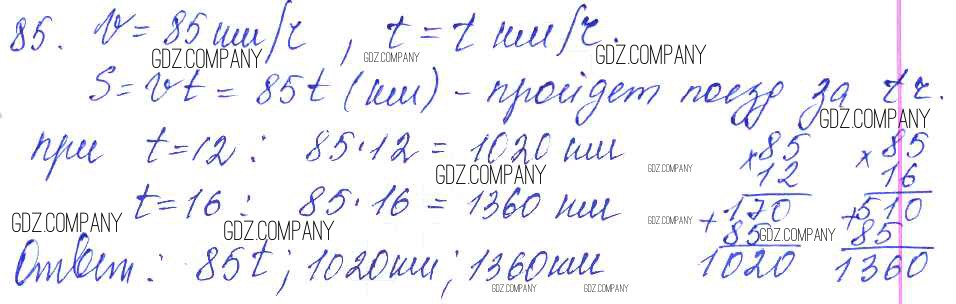 85. v = 85 км/ч, t = t км/ч.
S = vt = 85t (км) - пройдет поезд за t ч.
при t = 12 : 85 · 12 = 1020 км
t = 16 : 85 · 16 = 1360 км
Ответ : 85t ; 1020 км ; 1360 км
× 85
12
+ 170
85
1020
× 85
16
+ 510
85
1360
GDZ.COMPANY
GDZ.COMPANY
GDZ.COMPANY
GDZ.COMPANY
GDZ.COMPANY
GDZ.COMPANY
GDZ.COMPANY
GDZ.COMPANY
GDZ.COMPANY
GDZ.COMPANY
GDZ.COMPANY
GDZ.COMPANY